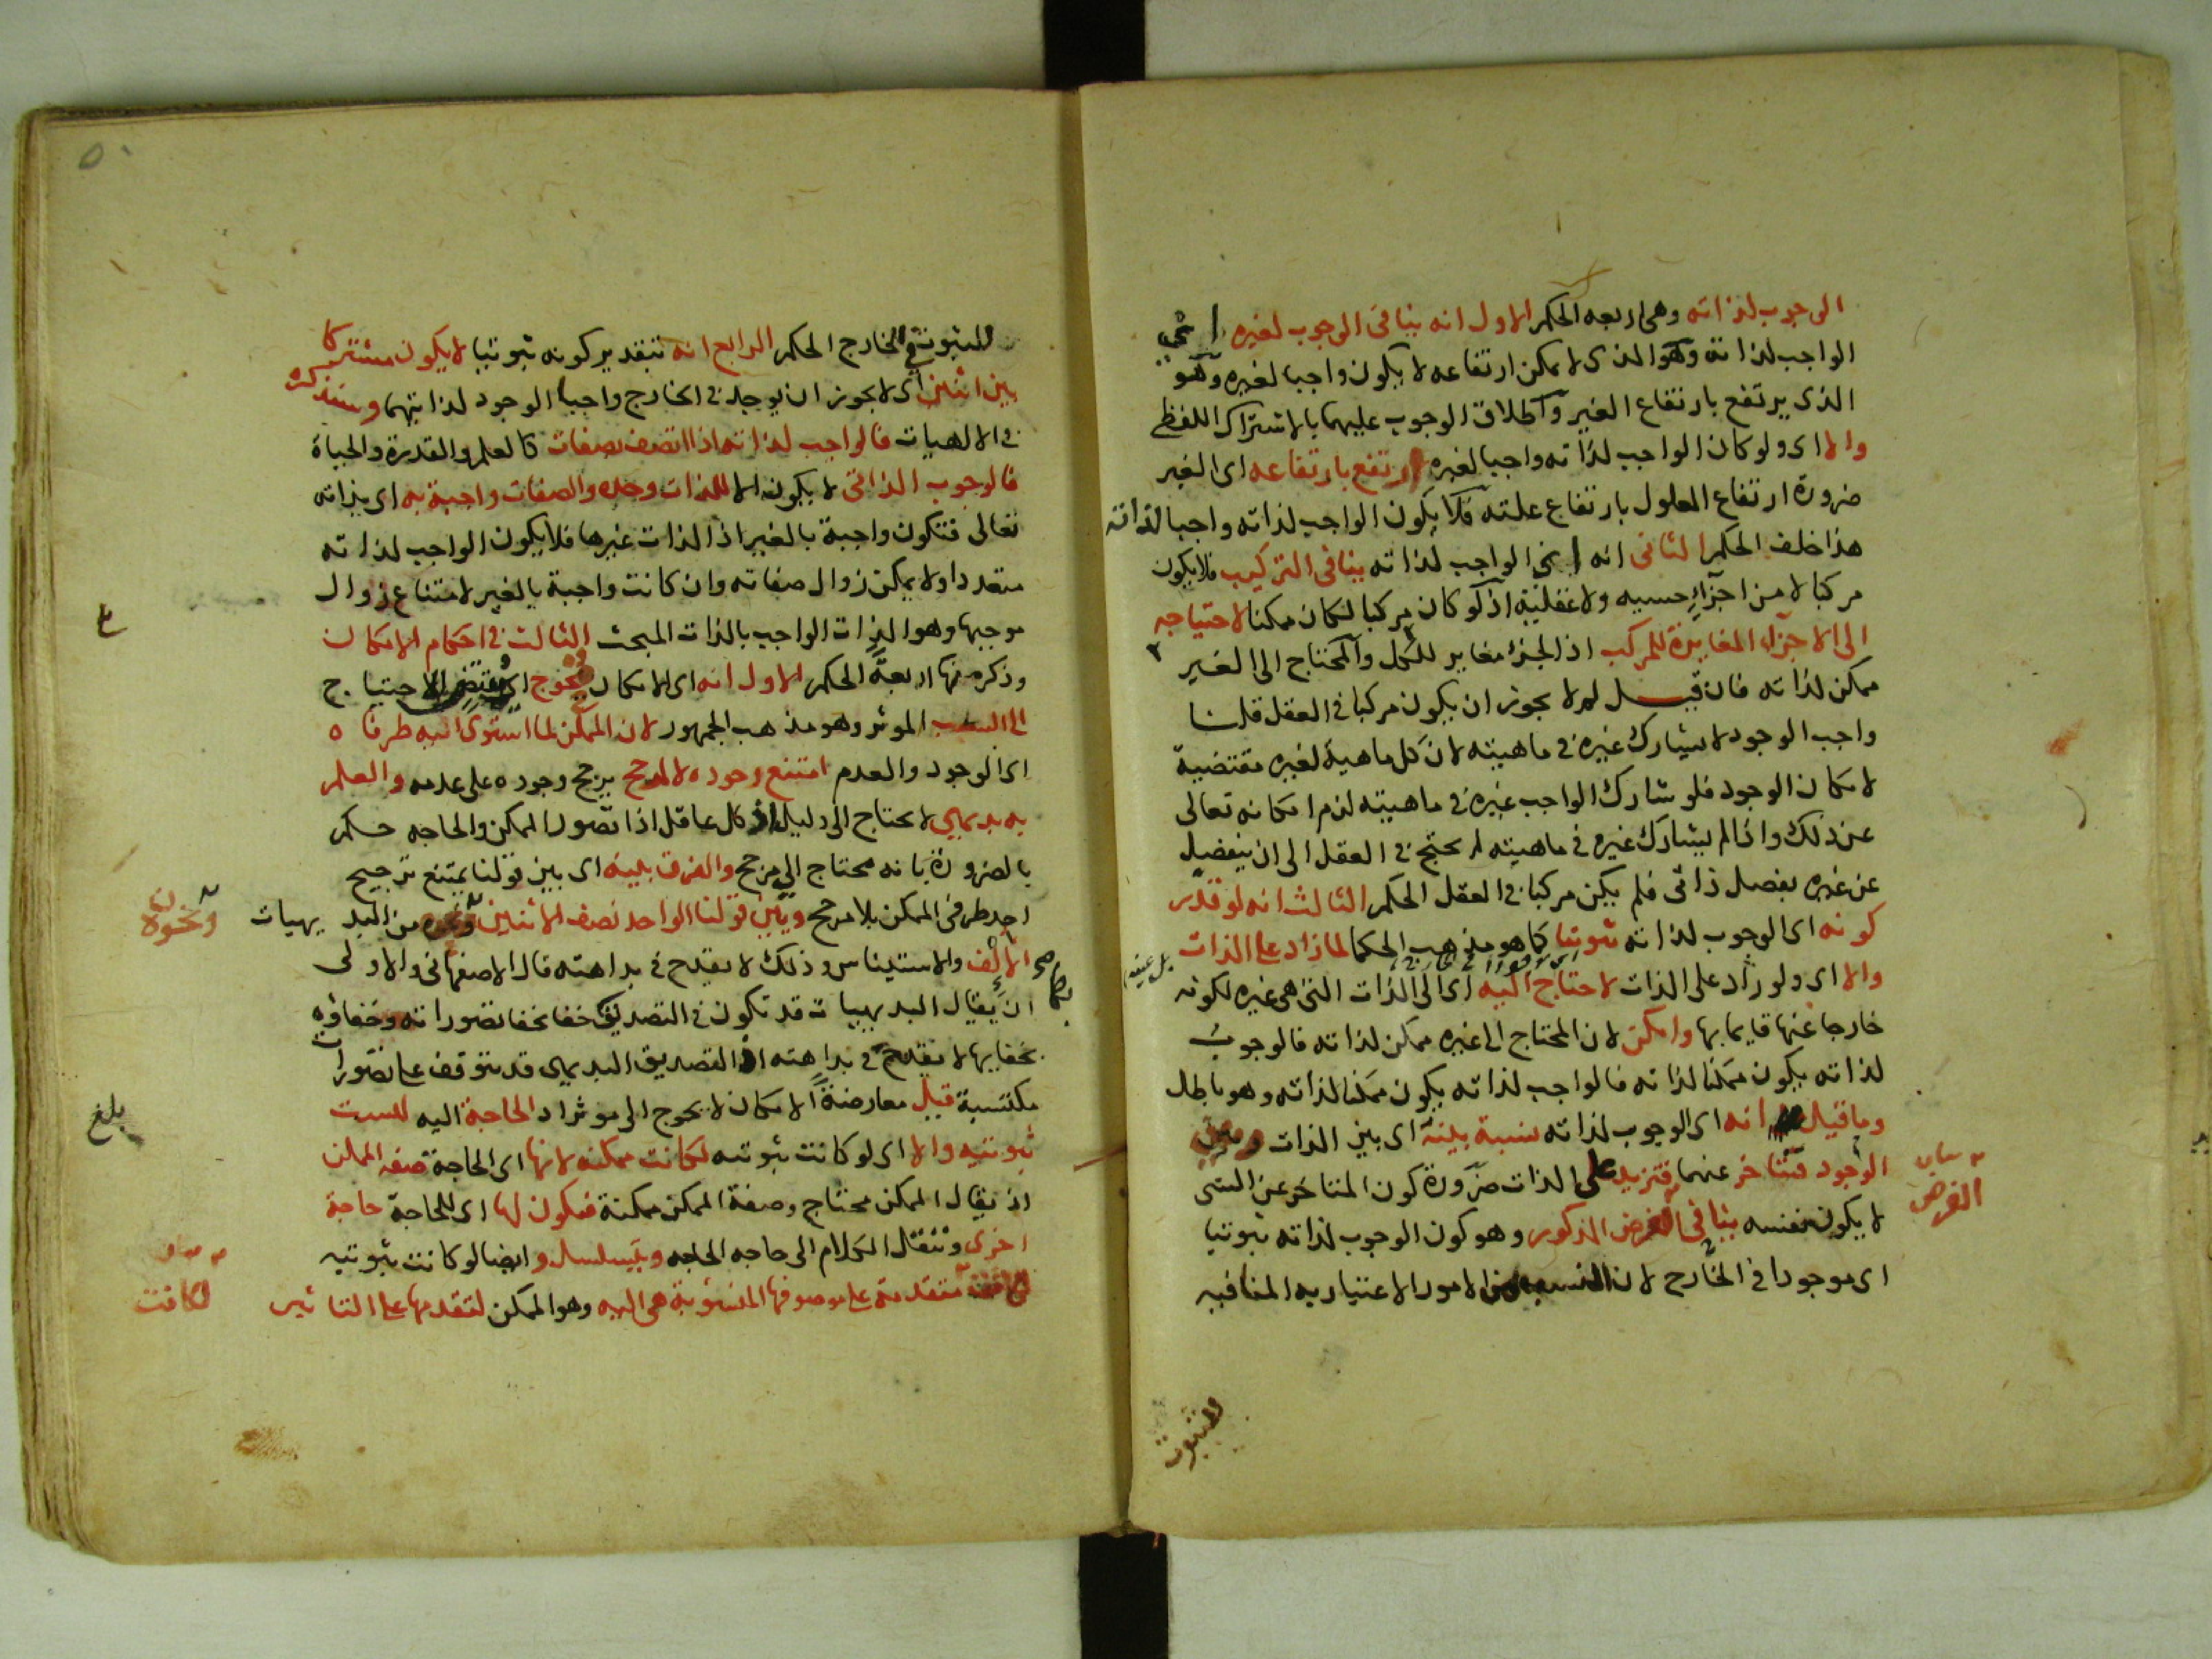 الوجوب لذاته وهى اربعه الحكم الاول انه ينافى الوجوب لغيره اى
الواجب لذاته وهو الذى لا يمكن ارتفاعه لا يكون واجبا لغيره وهو
الذى يرتفع بارتفاع الغير واطلاق الوجوب عليهما بالاشتراك اللفظى
والا اى ولو كان الواجب لذاته واجبا لغيره ارتفع بارتفاعه اى الغير
ضرورة ارتفاع المعلول بارتفاع علته فلا يكون الواجب لذاته واجبا لذاته
هذا خلف الحكم الثانى انه اى الواجب لذاته ينافى التركيب فلا يكون
مركبا لا من اجزاء حسيه ولا عقلية اذ لو كان مركبا لكان ممكنا لاحتياجه
الى الاجزاء المغايرة للمركب اذ الجزء مغاير للكل والمحتاج الى الغير
ممكن لذاته فان قيل لم لا يجوز ان يكون مركبا فى العقل قلنا
واجب الوجود لا يشارك غيره فى ماهيته لان كل ماهية لغيره مقتضية
لامكان الوجود فلو شارك الواجب غيره فى ماهيته لزم امكانه تعالى
عن ذلك واذا لم يشارك غيره فى ماهيته لم يحتج فى العقل الى ان ينفصل
عن غيره بفصل ذاتى فلم يكن مركبا فى العقل الحكم الثالث انه لو قدر
كونه اى الوجوب لذاته ثبوتيا كما هو مذهب الحكما لما زاد على الذات
بل عينه
والا اى ولو زاد على الذات لاحتاج اليه اى الى الذات التى هى غيره لكونه
خارجا عنها قايما بها وامكن لان المحتاج الى غيره ممكن لذاته فالوجوب
لذاته يكون ممكنا لذاته فالواجب لذاته يكون ممكنا لذاته وهو باطل
وما قيل انه اى الوجوب لذاته نسبة بينه اى بين الذات وبين
الوجود فتتاخر عنهما فتزيد على الذات ضرورة كون المتاخر عن الشى
لا يكون نفسه ينافى الفرض المذكور وهو كون الوجوب لذاته ثبوتيا
الفرض
اى موجودا فى الخارج لان النسبه من الامور الاعتباريه المنافيه
للثبوت
للثبوت فى الخارج الحكم الرابع انه بتقدير كونه ثبوتيا لا يكون مشتركا
بين اثنين اى لا يجوز ان يوجد فى الخارج واجبا الوجود لذاتيهما وسنذكره
فى الالهيات فالواجب لذاته اذا اتصف بصفات كالعلم والقدرة والحياة
فالوجوب الذاتى لا يكون الا للذات وحده والصفات واجبة به اى بذاته
تعالى فتكون واجبة بالغير اذ الذات غيرها فلا يكون الواجب لذاته
متعددا ولا يمكن زوال صفاته وان كانت واجبة بالغير لامتناع زوال
موجبها وهو الذات الواجب بالذات المبحث الثالث فى احكام الامكان
وذكر منها اربعة الحكم الاول انه اى الامكان يحوج اى يقتضى الاحتياج
الى السبب الموثر وهو مذهب الجمهور لان الممكن لما استوى اليه طرفاه
اى الوجود والعدم امتنع وجوده الا لمرجح يرجح وجوده على عدمه والعلم
به بديهى لا يحتاج الى دليل اذ كل عاقل اذا تصور الممكن والحاجه حكم
بالضرورة بانه محتاج الى مرجح والفرق بينه اى بين قولنا يمتنع ترجيح
احد طرفى الممكن بلا مرجح وبين قولنا الواحد نصف الاثنين ونحوه من البديهيات
ونحوه
للالف والاستيناس وذلك لا يقدح فى بداهته قال الاصفهانى والاولى
ان يقال البديهيات قد تكون فى التصديق خفا بخفا تصوراته وخفاؤه
بخفايها لا يقدح فى بداهته اذ التصديق البديهى قد يتوقف على تصورات
مكتسبة قيل معارضة الامكان لا يحوج الى موثر اذ الحاجة اليه ليست
بلغ
ثبوتيه والا اى لو كانت ثبوتيه لكانت ممكنه لانها اى الحاجة صفه الممكن
اذ يقال الممكن محتاج وصفة الممكن ممكنة فيكون لها اى للحاجة حاجة
اخرى وننقل الكلام الى حاجه الحاجه ويتسلسل وايضا لو كانت ثبوتيه
لكانت
لكانت متقدمة على موصوفها المنسوبة هى اليه وهو الممكن لتقدمها على التاثير